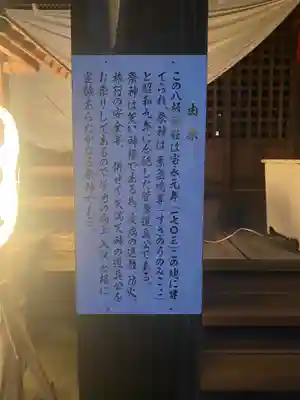 由来
この八坂神社は宝永元年(一七〇三)この地に建
てられ、祭神は素盞嗚尊(すさのうのみこと)
と昭和九年に合祀した菅原道真公である。
祭神は荒い神様である為、疫病の退散、防火、
旅行の安全等、併せて天満天神の道真公を
お祭りしてあるので学力の向上、入試合格に
霊験あらたかなる祭神である。